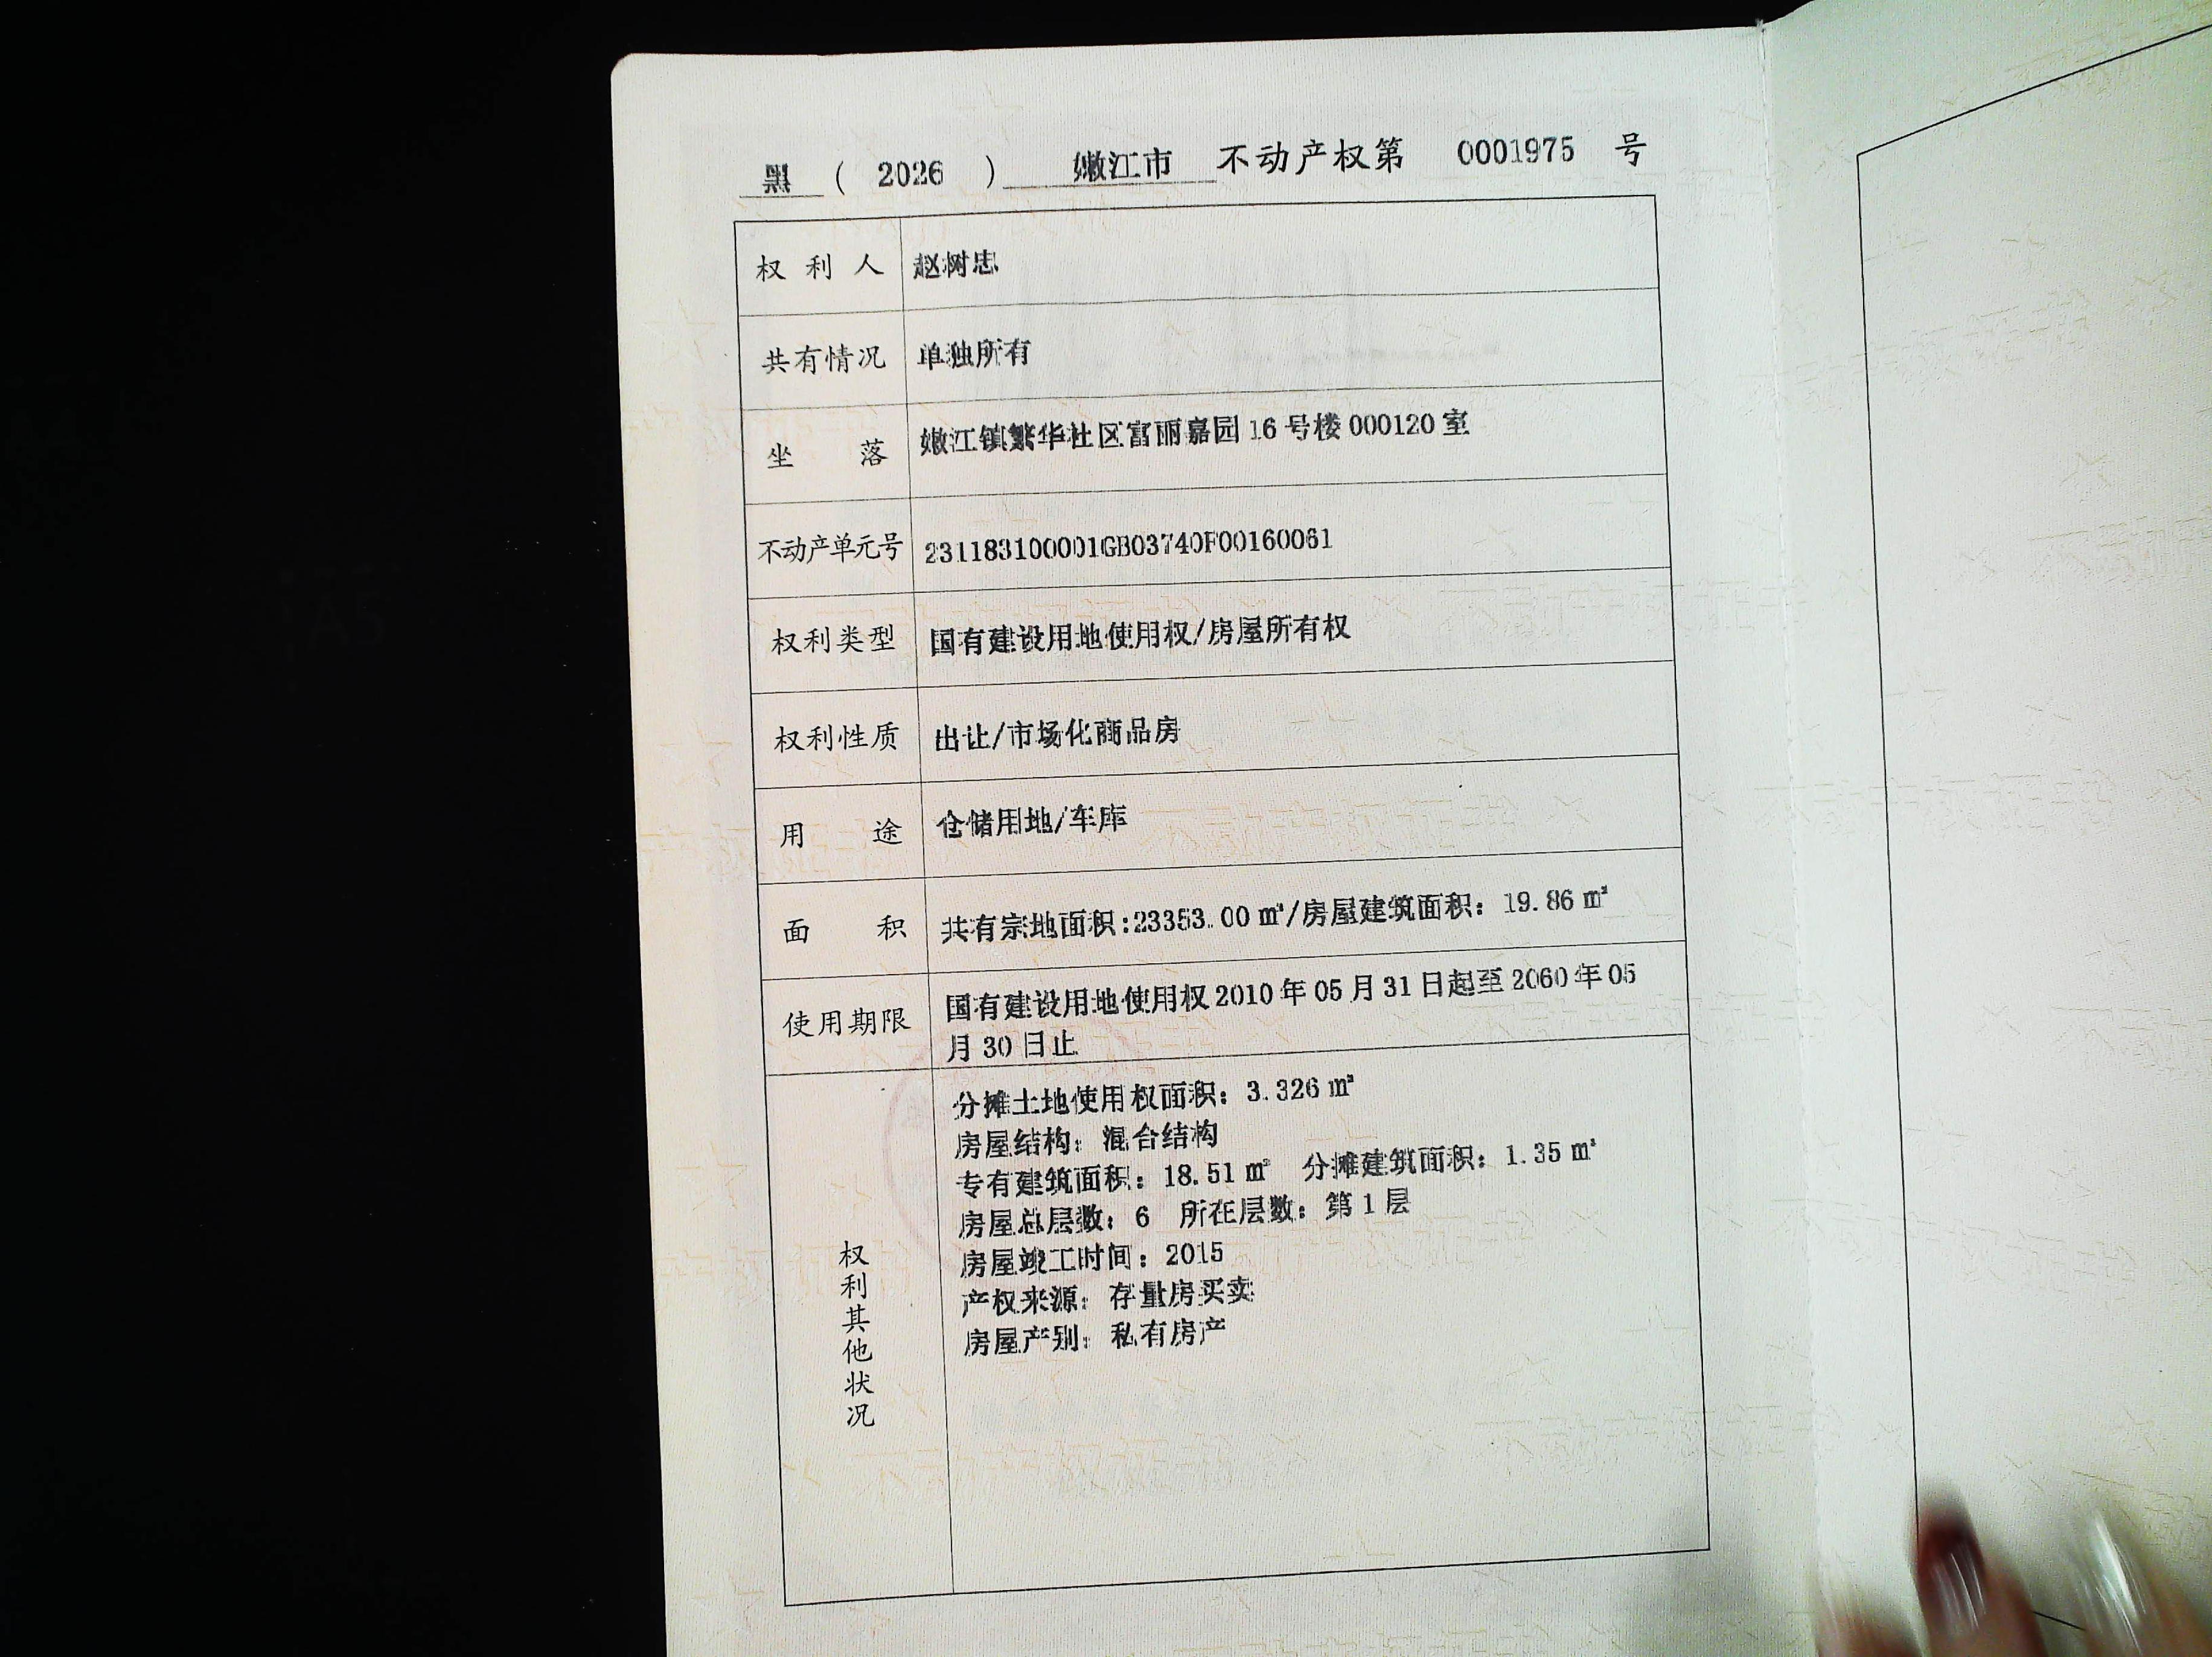 黑 ( 2026 ) 嫩江市 不动产权第 0001975 号
权利人 赵树忠
共有情况 单独所有
坐落 嫩江镇繁华社区富丽嘉园16号楼000120室
不动产单元号 231183100001GB03740F00160061
权利类型 国有建设用地使用权/房屋所有权
权利性质 出让/市场化商品房
用途 仓储用地/车库
面积 共有宗地面积:23353.00㎡/房屋建筑面积：19.86㎡
使用期限 国有建设用地使用权2010年05月31日起至2060年05
月30日止
权利其他状况
分摊土地使用权面积：3.326㎡
房屋结构：混合结构
专有建筑面积：18.51㎡ 分摊建筑面积：1.35㎡
房屋总层数：6 所在层数：第1层
房屋竣工时间：2015
产权来源：存量房买卖
房屋产别：私有房产